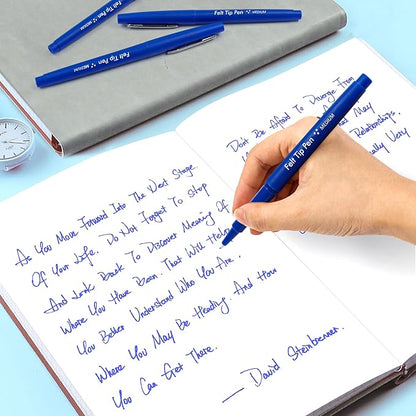 Felt Tip Pen MEDIUM
Felt Tip Pen MEDIUM
Felt Tip Pen MEDIUM
As You Move Forward Into The Next Stage
Of Your Life. Do Not Forget To Stop
And Look Back To Discover Meaning Of
Where You Have Been. That Will Help
You Better Understand Who You Are.
Where You May Be Heading. And How
You Can Get There.
— David Steinbrenner.
Don't Be Afraid To Diverge From
May
Relationships.
Very
Felt Tip Pen MEDIUM